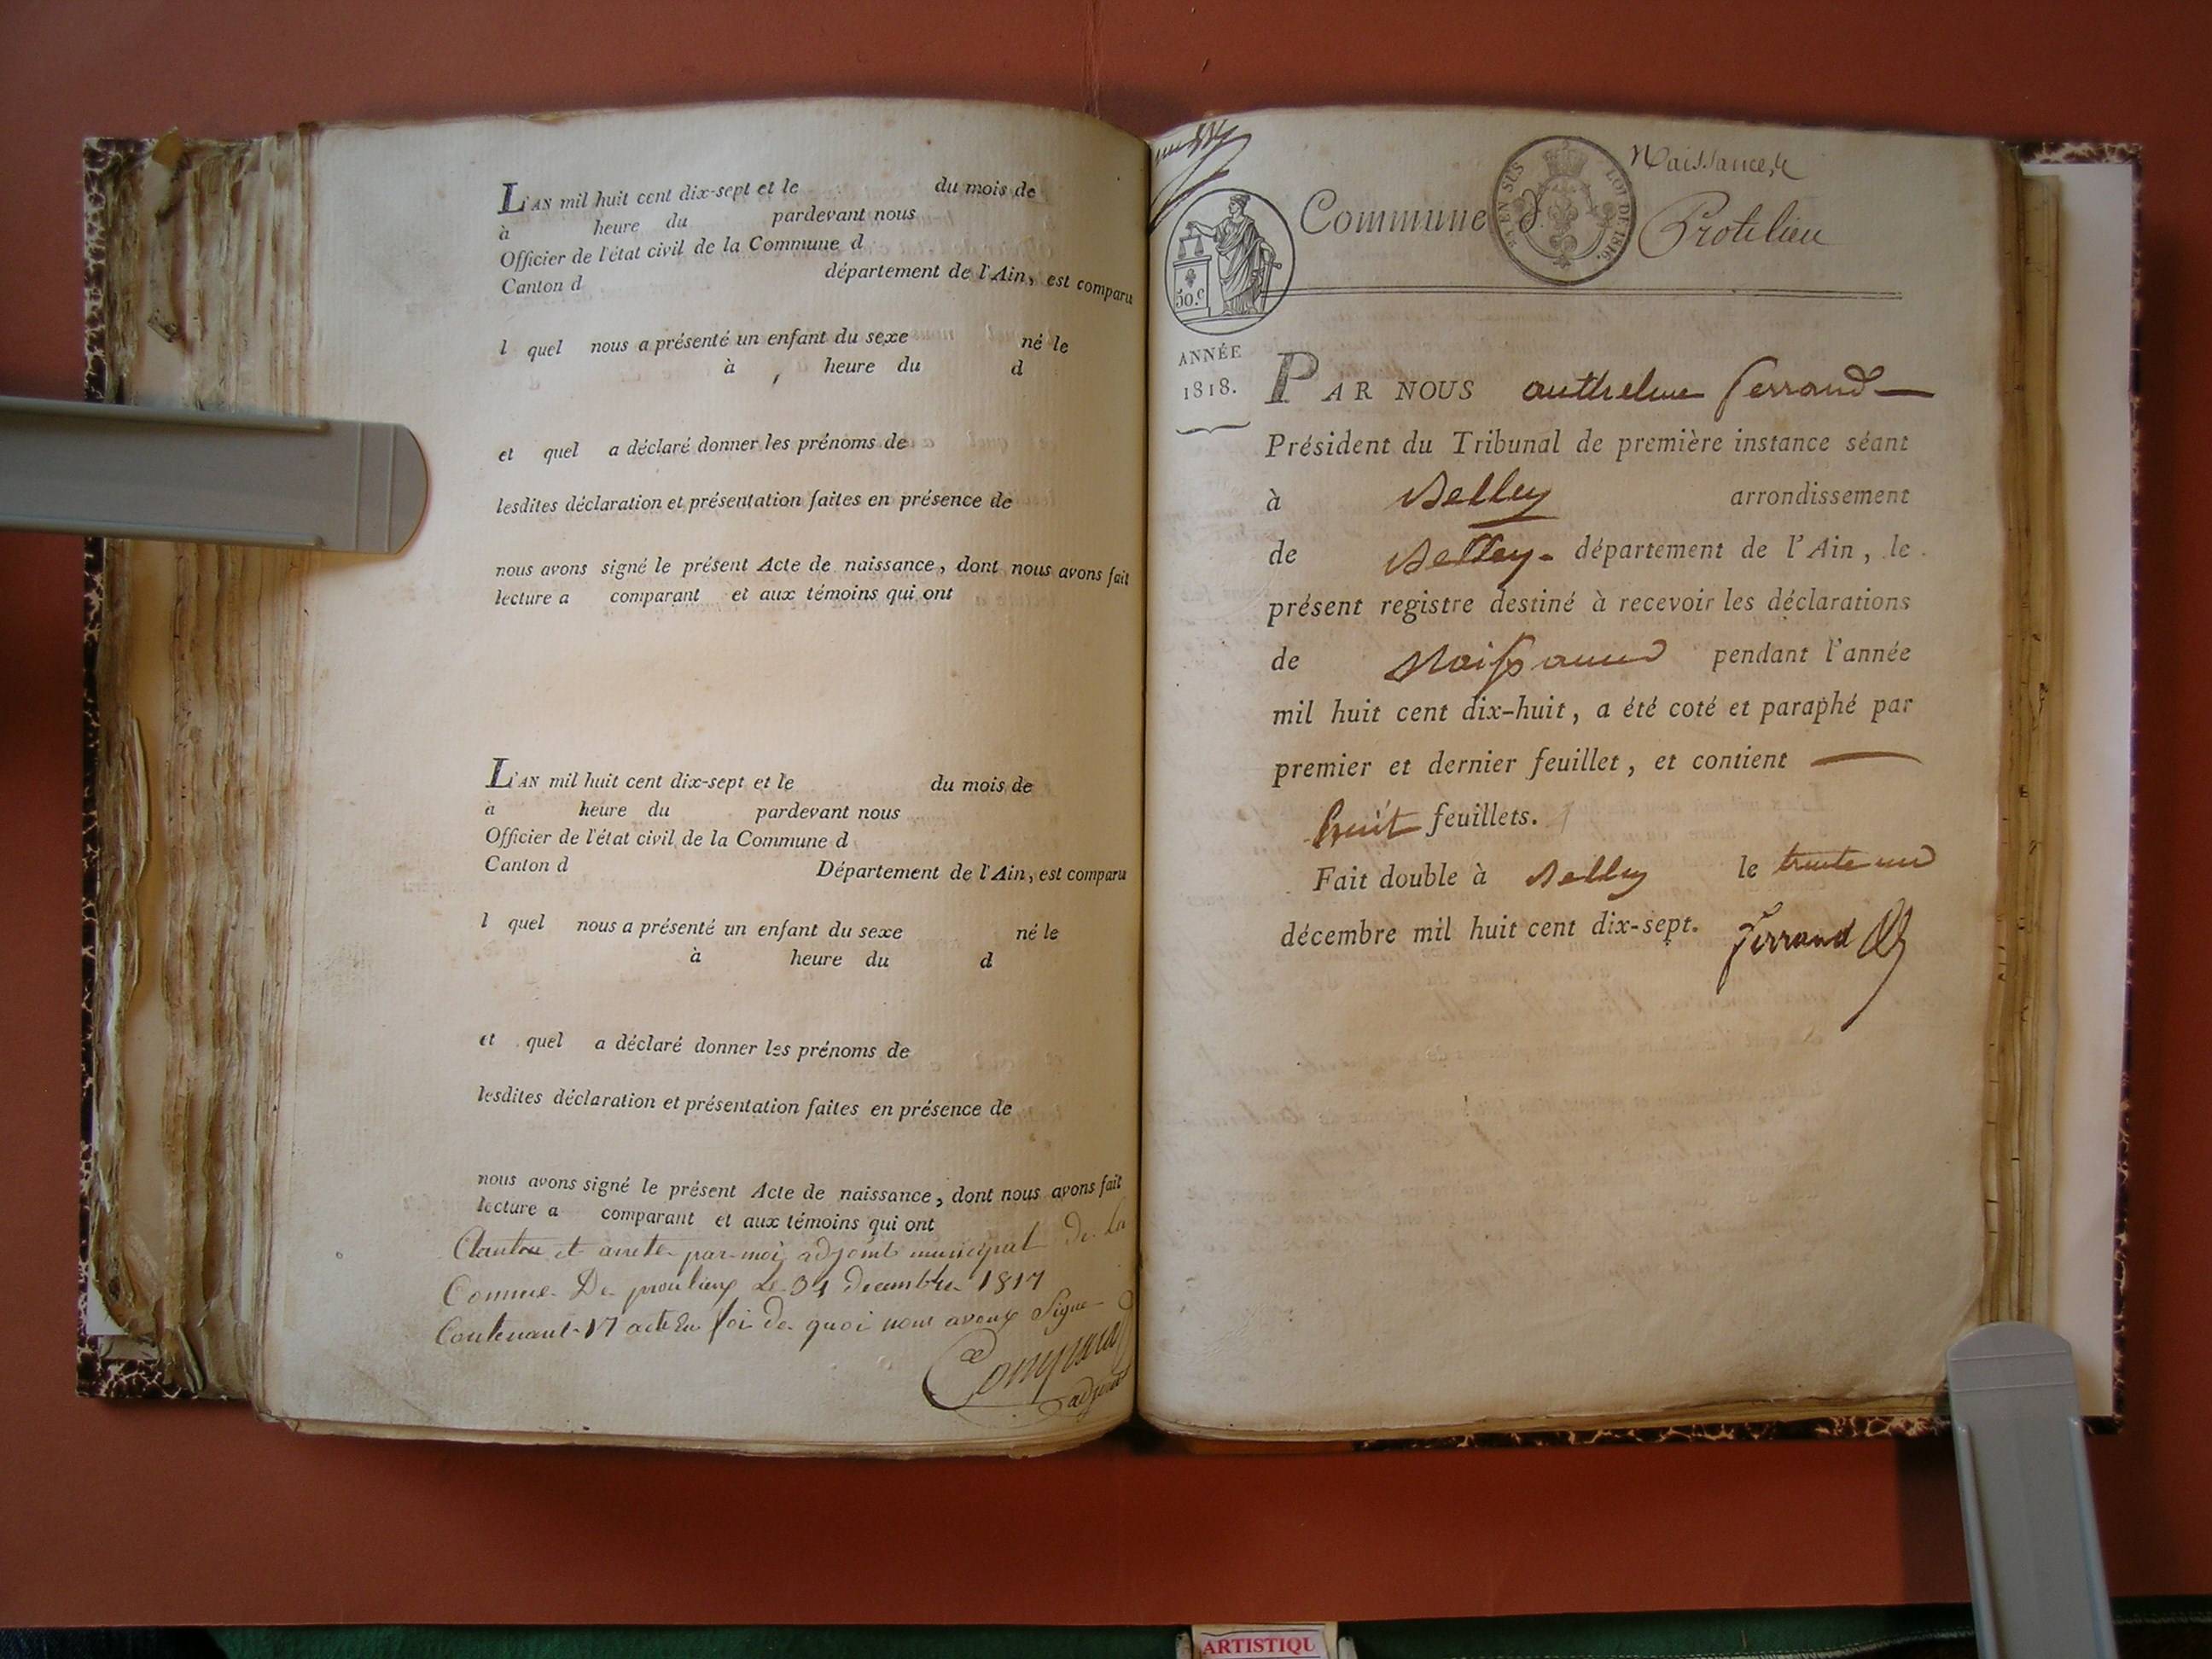 L'AN mil huit cent dix-sept et le du mois de
à heure du pardevant nous
Officier de l'état civil de la Commune d
Canton d département de l'Ain, est comparu
l quel nous a présenté un enfant du sexe né le
à heure du d
et quel a déclaré donner les prénoms de
lesdites déclaration et présentation faites en présence de
nous avons signé le présent Acte de naissance, dont nous avons fait
lecture a comparant et aux témoins qui ont
L'AN mil huit cent dix-sept et le du mois de
à heure du pardevant nous
Officier de l'état civil de la Commune d
Canton d Département de l'Ain, est comparu
l quel nous a présenté un enfant du sexe né le
à heure du d
et quel a déclaré donner les prénoms de
lesdites déclaration et présentation faites en présence de
nous avons signé le présent Acte de naissance, dont nous avons fait
lecture a comparant et aux témoins qui ont
et arrete par moi adjoint municipal De la
Comune De le 31 Decembre 1817
Contenant 17 acte En foi De quoi nous avons Signe
adjoint
Naissance
Commune d Protelieu
EN SUS LOI DE 1816.
50.c
ANNÉE
1818.
PAR NOUS anthelme ferrand
Président du Tribunal de première instance séant
à Belley arrondissement
de Belley département de l'Ain, le
présent registre destiné à recevoir les déclarations
de Naissance pendant l'année
mil huit cent dix-huit, a été coté et paraphé par
premier et dernier feuillet, et contient
huit feuillets.
Fait double à Belley le trente un
décembre mil huit cent dix-sept. ferrand
ARTISTIQU